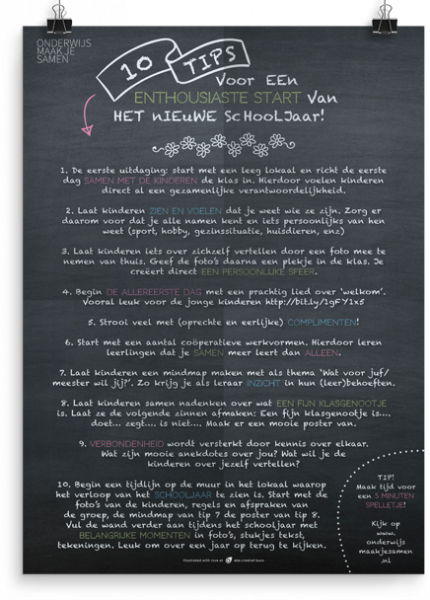 ONDERWIJS
MAAK JE
SAMEN
10 TIPS
Voor EEn
ENTHOUSIASTE START Van
HET nIEuWE ScHOolJaar!
1. De eerste uitdaging: start met een leeg lokaal en richt de eerste
dag SAMEN MET DE KINDEREN de klas in. Hierdoor voelen kinderen
direct al een gezamenlijke verantwoordelijkheid.
2. Laat kinderen ZIEN EN VOELEN dat je weet wie ze zijn. Zorg er
daarom voor dat je alle namen kent en iets persoonlijks van hen
weet (sport, hobby, gezinssituatie, huisdieren, enz)
3. Laat kinderen iets over zichzelf vertellen door een foto mee te
nemen van thuis. Geef de foto's daarna een plekje in de klas. Je
creëert direct EEN PERSOONLIJKE SFEER.
4. Begin DE ALLEREERSTE DAG met een prachtig lied over 'welkom'.
Vooral leuk voor de jonge kinderen http://bit.ly/1gFY1x5
5. Strooi veel met (oprechte en eerlijke) COMPLIMENTEN!
6. Start met een aantal coöperatieve werkvormen. Hierdoor leren
leerlingen dat je SAMEN meer leert dan ALLEEN.
7. Laat kinderen een mindmap maken met als thema 'Wat voor juf/
meester wil jij?'. Zo krijg je als leraar INZICHT in hun (leer)behoeften.
8. Laat kinderen samen nadenken over wat EEN FIJN KLASGENOOTJE
is. Laat ze de volgende zinnen afmaken: Een fijn klasgenootje is....
doet... zegt.... is niet.... Maak er een mooie poster van.
9. VERBONDENHEID wordt versterkt door kennis over elkaar.
Wat zijn mooie anekdotes over jou? Wat wil je de
kinderen over jezelf vertellen?
10. Begin een tijdlijn op de muur in het lokaal waarop
het verloop van het SCHOOLJAAR te zien is. Start met de
foto's van de kinderen, regels en afspraken van
de groep, de mindmap van tip 7 en de poster van tip 8.
Vul de wand verder aan tijdens het schooljaar met
BELANGRIJKE MOMENTEN in foto's, stukjes tekst,
tekeningen. Leuk om over een jaar op terug te kijken.
TIP!
Maak tijd voor
een 5 MINUTEN
SPELLETJE!
Kijk op
www.
onderwijs
maakjesamen
.nl